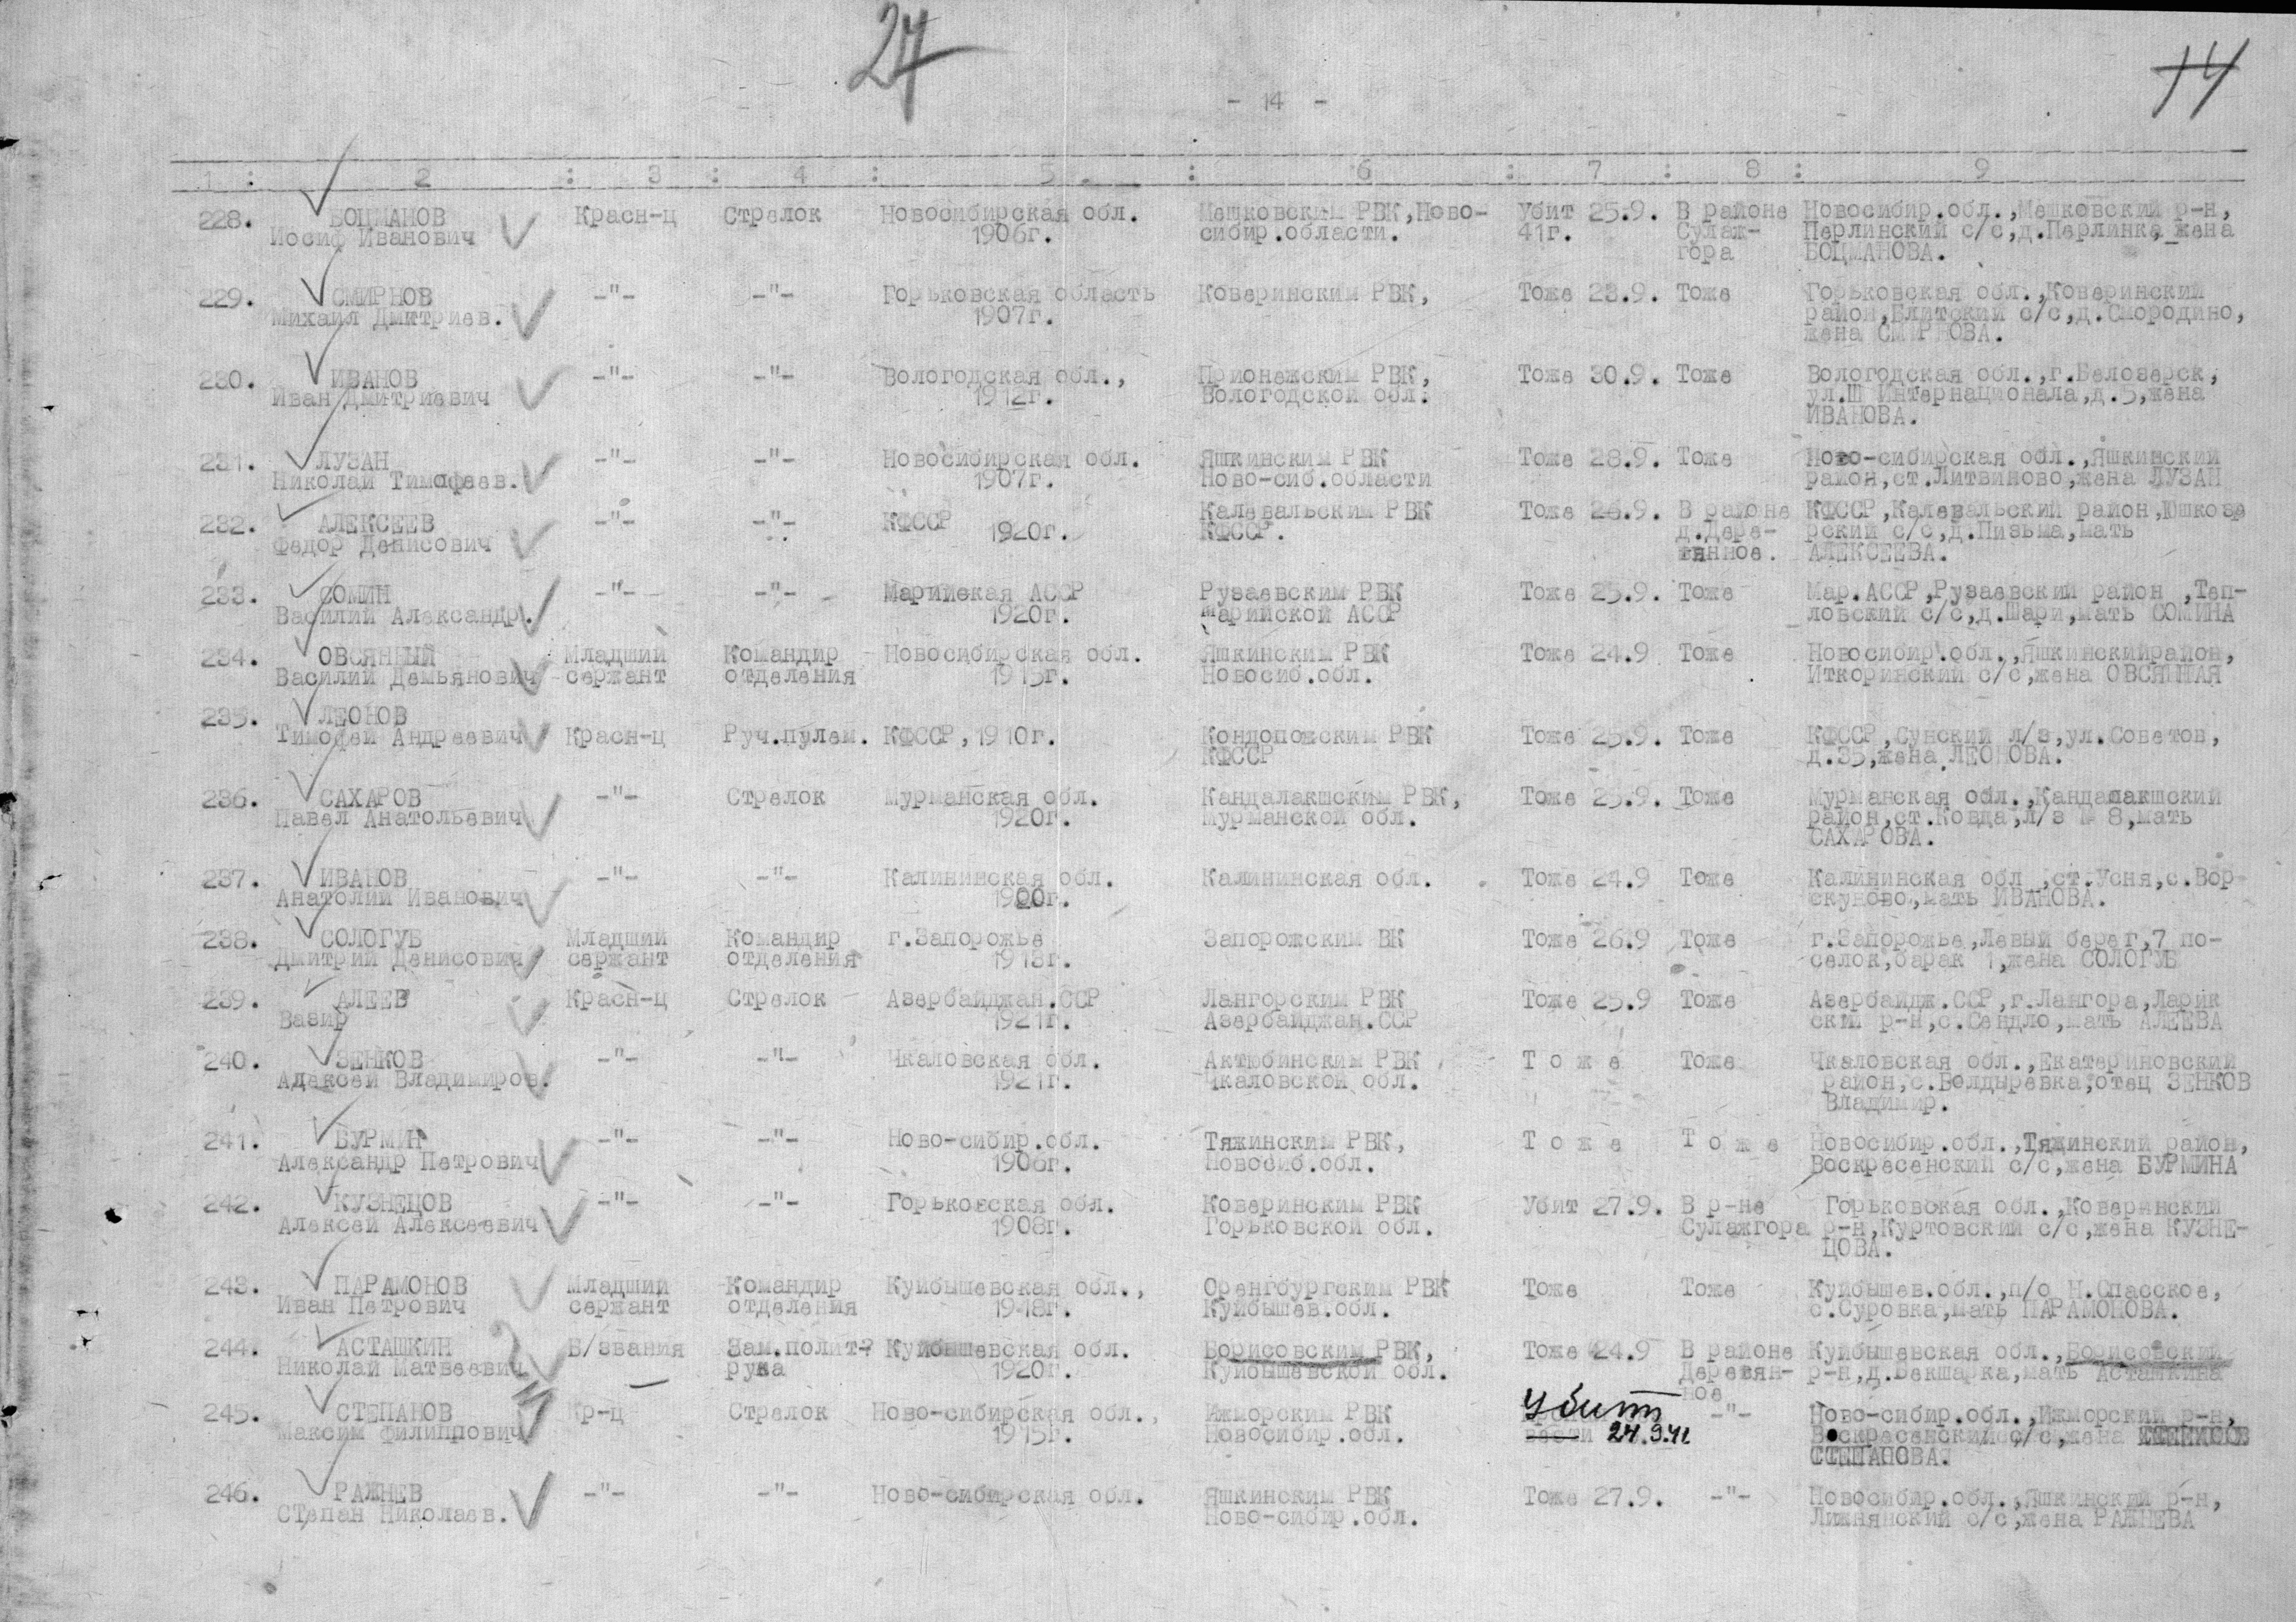 27
- 14 -
14
1 : 2 : 3 : 4 : 5 : 6 : 7 : 8 : 9
228. БОЦМАНОВ Красн-ц Стрелок Новосибирская обл. Мешковским РВК,Ново- Убит 25.9. В районе Новосибир.обл.,Мешковский р-н,
Иосиф Иванович 1906г. сибир.области. 41г. Сулаж- Перлинский с/с,д.Перлинка,жена
гора БОЦМАНОВА.
229. СМИРНОВ -"- -"- Горьковская область Коверинским РВК, Тоже 28.9. Тоже Горьковская обл.,Коверинский
Михаил Дмитриев. 1907г. район,Елитский с/с,д.Смородино,
жена СМИРНОВА.
230. ИВАНОВ -"- -"- Вологодская обл., Прионежским РВК, Тоже 30.9. Тоже Вологодская обл.,г.Белозерск,
Иван Дмитриевич 1912г. Вологодской обл. ул.Ш Интернационала,д.5,жена
ИВАНОВА.
231. ЛУЗАН -"- -"- Новосибирская обл. Яшкинским РВК Тоже 28.9. Тоже Ново-сибирская обл.,Яшкинский
Николай Тимофеев. 1907г. Ново-сиб.области район,ст.Литвиново,жена ЛУЗАН
232. АЛЕКСЕЕВ -"- -"- КФССР Калевальским РВК Тоже 26.9. В районе КФССР,Калевальский район,Юшкозе
Федор Денисович 1920г. КФССР. д.Дере- рский с/с,д.Пизьма,мать
вянное. АЛЕКСЕЕВА.
233. СОМИН -"- -"- Марийская АССР Рузаевским РВК Тоже 25.9. Тоже Мар.АССР,Рузаевский район ,Теп-
Василий Александр. 1920г. Марийской АССР ловский с/с,д.Шари,мать СОМИНА
234. ОВСЯННЫЙ Младший Командир Новосибирская обл. Яшкинским РВК Тоже 24.9 Тоже Новосибир.обл.,Яшкинскийрайон,
Василий Демьянович сержант отделения 1915г. Новосиб.обл. Иткоринский с/с,жена ОВСЯННАЯ
235. ЛЕОНОВ
Тимофей Андреевич Красн-ц Руч.пулем. КФССР,1910г. Кондопожским РВК Тоже 25.9. Тоже КФССР,Сунский л/з,ул.Советов,
КФССР д.35,жена ЛЕОНОВА.
236. САХАРОВ -"- Стрелок Мурманская обл. Кандалакшским РВК, Тоже 25.9. Тоже Мурманская обл.,Кандалакшский
Павел Анатольевич 1920г. Мурманской обл. район,ст.Ковда,л/з № 8,мать
САХАРОВА.
237. ИВАНОВ -"- -"- Калининская обл. Калининская обл. Тоже 24.9 Тоже Калининская обл.,ст.Усня,с.Вор
Анатолий Иванович 1900г. скуново,мать ИВАНОВА.
238. СОЛОГУБ Младший Командир г.Запорожье Запорожским ВК Тоже 26.9 Тоже г.Запорожье,Левый берег,7 по-
Дмитрий Денисович сержант отделения 1913г. селок,барак 1,жена СОЛОГУБ
239. АЛЕЕВ Красн-ц Стрелок Азербайджан.ССР Лангорским РВК Тоже 25.9 Тоже Азербайдж.ССР,г.Лангора,Ларик
Вазир 1921г. Азербайджан.ССР ский р-н,с.Сендло,мать АЛЕЕВА
240. ЗЕНКОВ -"- -"- Чкаловская обл. Актюбинским РВК Т о ж е Тоже Чкаловская обл.,Екатериновский
Алексей Владимиров. 1921г. Чкаловской обл. район,с.Болдыревка,отец ЗЕНКОВ
Владимир.
241. БУРМИН -"- -"- Ново-сибир.обл. Тяжинским РВК, Т о ж е Т о ж е Новосибир.обл.,Тяжинский район,
Александр Петрович 1906г. Новосиб.обл. Воскресенский с/с,жена БУРМИНА
242. КУЗНЕЦОВ -"- -"- Горьковская обл. Коверинским РВК Убит 27.9. В р-не Горьковская обл.,Коверинский
Алексей Алексеевич 1908г. Горьковской обл. Сулажгора р-н,Куртовский с/с,жена КУЗНЕ-
ЦОВА.
243. ПАРАМОНОВ Младший Командир Куйбышевская обл., Оренгбургским РВК Тоже Тоже Куйбышев.обл.,п/о Н.Спасское,
Иван Петрович сержант отделения 1918г. Куйбышев.обл. с.Суровка,мать ПАРАМОНОВА.
244. АСТАШКИН Б/звания Зам.полит- Куйбышевская обл. Борисовским РВК, Тоже 24.9 В районе Куйбышевская обл.,Борисовский
Николай Матвеевич рука 1920г. Куйбышевской обл. Деревян- р-н,д.Бекшарка,мать Асташкина
ное
245. СТЕПАНОВ Кр-ц Стрелок Ново-сибирская обл., Ижморским РВК Убит -"- Ново-сибир.обл.,Ижморский р-н,
Максим Филиппович 1915г. Новосибир.обл. 24.9.41 Воскресенский с/с,жена
СТЕПАНОВА.
246. РАЖНЕВ -"- -"- Ново-сибирская обл. Яшкинским РВК Тоже 27.9. -"- Новосибир.обл.,Яшкинский р-н,
СТепан Николаев. Ново-сибир.обл. Лижнянский с/с,жена РАЖНЕВА